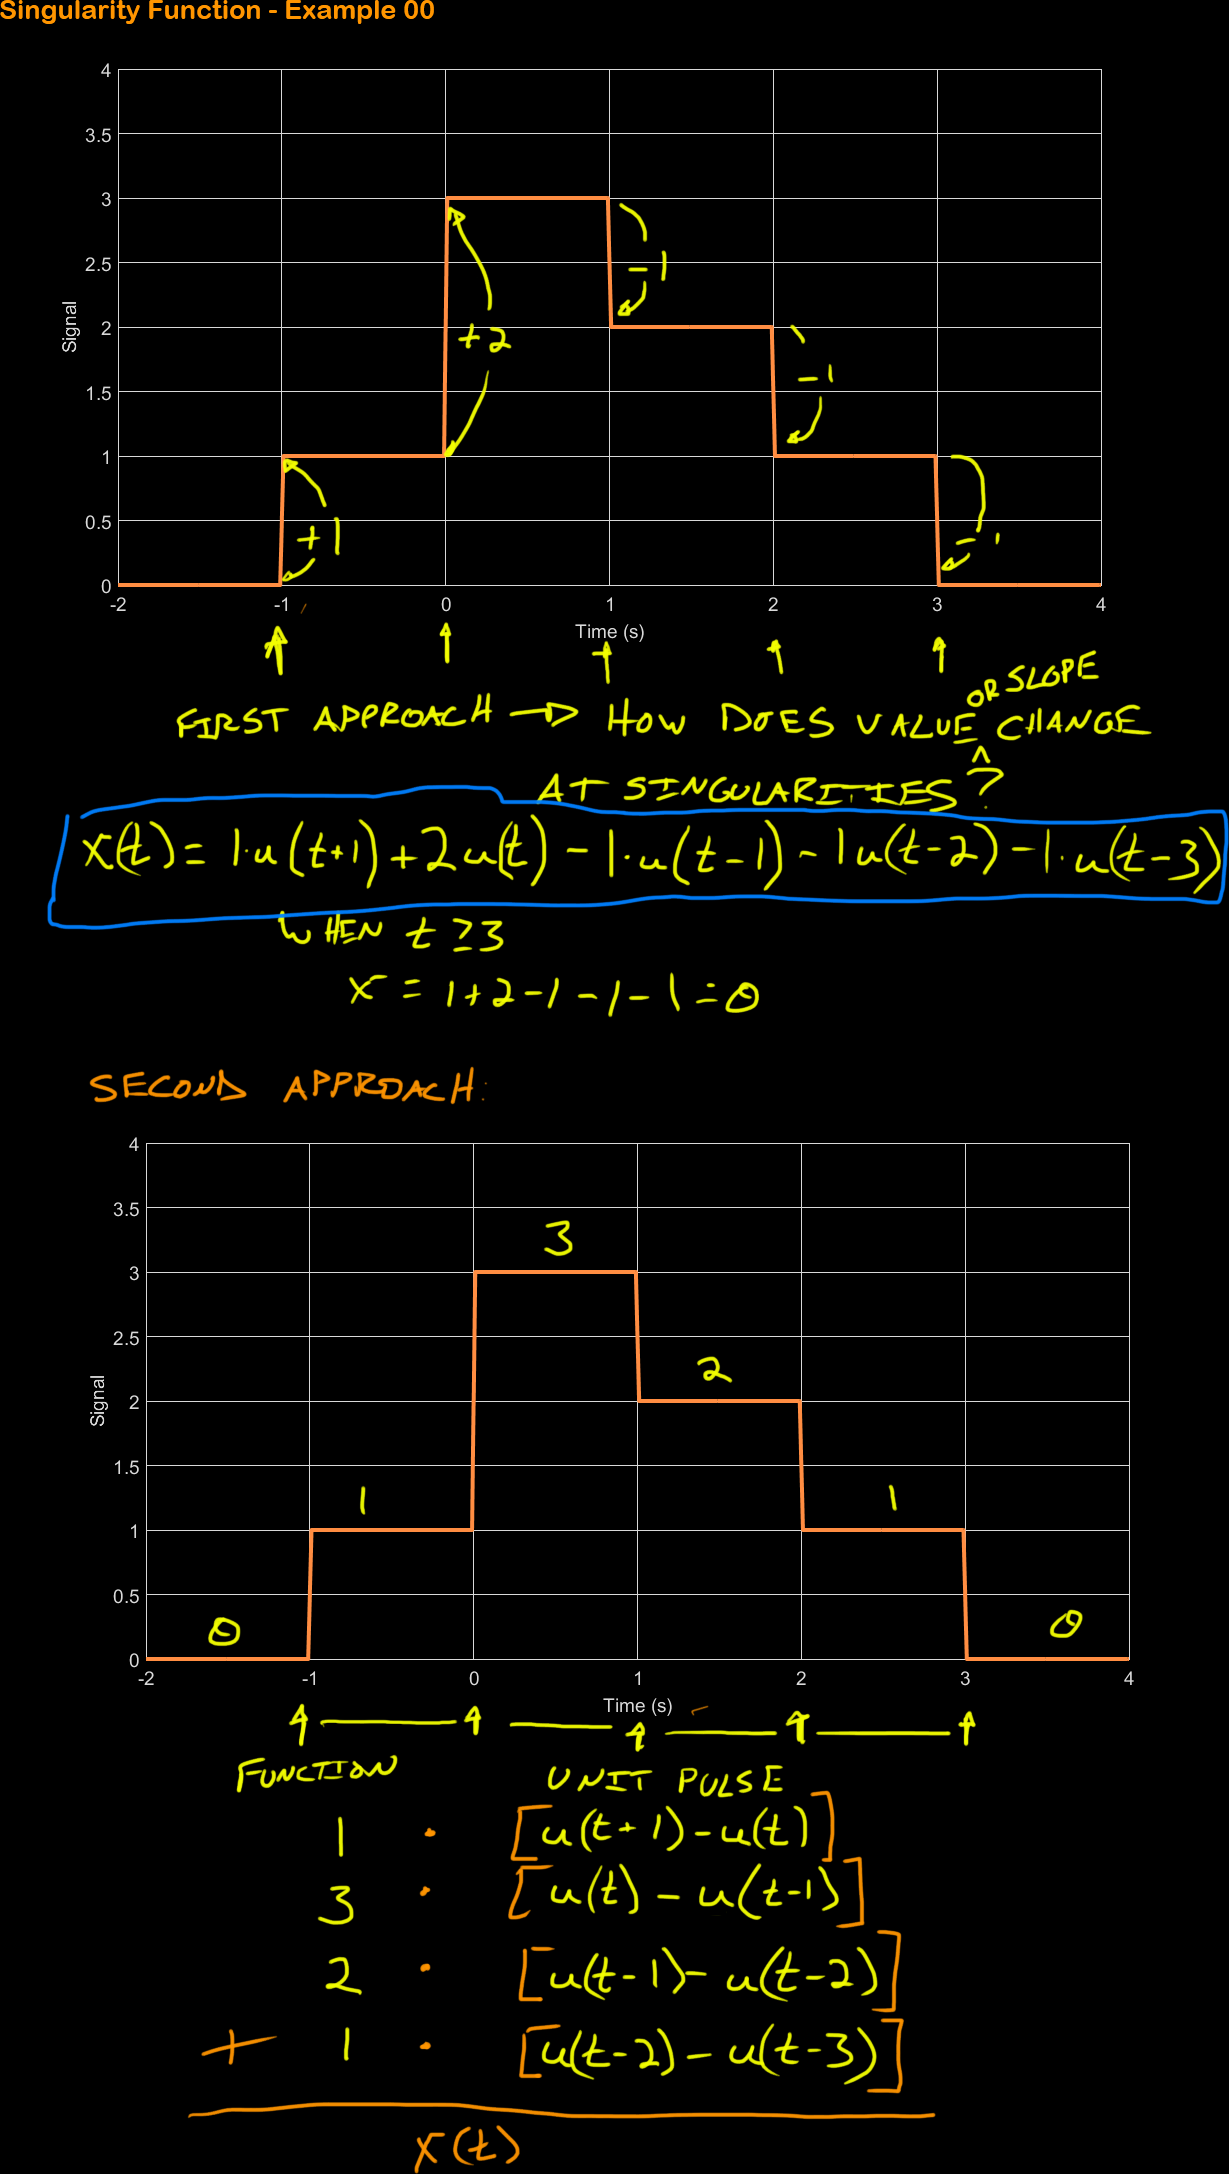 Singularity Function - Example 00
4
3.5
3
2.5
2
1.5
1
0.5
0
Signal
+1
+2
-1
-1
-1
-2 -1 0 1 2 3 4
Time (s)
OR SLOPE
FIRST APPROACH → HOW DOES VALUE ^ CHANGE
AT SINGULARITIES?
x(t) = 1·u(t+1) + 2u(t) - 1·u(t-1) - 1u(t-2) - 1·u(t-3)
WHEN t ≥ 3
x = 1+2-1-1-1=0
SECOND APPROACH:
4
3.5
3
2.5
2
1.5
1
0.5
0
Signal
0
1
3
2
1
0
-2 -1 0 1 2 3 4
Time (s)
FUNCTION UNIT PULSE
1 · [u(t+1)-u(t)]
3 · [u(t) - u(t-1)]
2 · [u(t-1) - u(t-2)]
+ 1 · [u(t-2) - u(t-3)]
x(t)